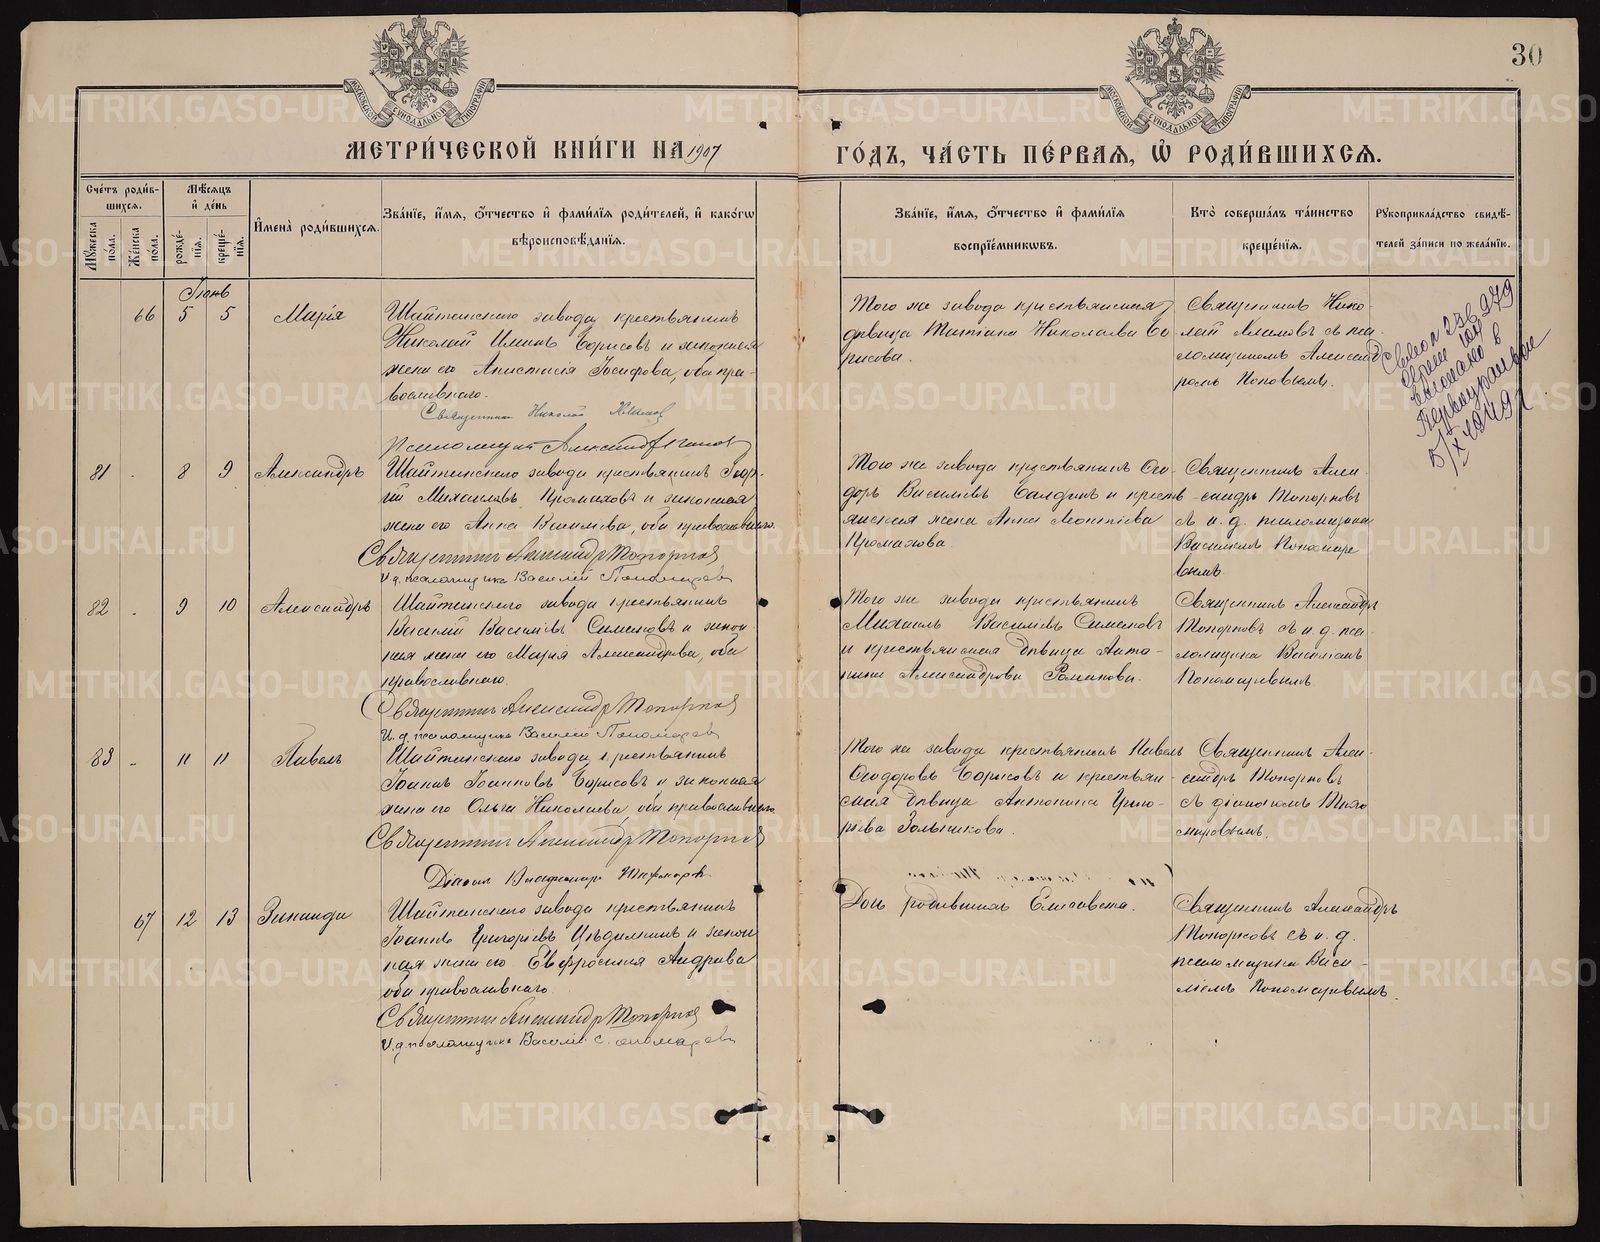 30
МОСКОВСКОЙ СѴНОДАЛЬНОЙ ТИПОГРАФІИ
МОСКОВСКОЙ СѴНОДАЛЬНОЙ ТИПОГРАФІИ
МЕТРИ́ЧЕСКОЙ КНИ́ГИ НА 1907
ГО́ДЪ, ЧА́СТЬ ПЕ́РВАЯ, Ѡ҆ РОДИ́ВШИХСЯ.
Сче́тъ роди́в-
шихся.
Мѣ́сяцъ
и҆ де́нь
Мꙋ́жеска по́ла.
Же́нска по́ла.
рожде́-
нїя.
креще́-
нїя.
И҆мена̀ роди́вшихся.
Зва́нїе, и҆́мя, ѻ҆́тчество и҆ фами́лїя роди́телей, и҆ како́гѡ
вѣроисповѣ́данїя.
Зва́нїе, и҆́мя, ѻ҆́тчество и҆ фами́лїя
воспрїе́мникѡвъ.
Кто̀ соверша́лъ та́инство
креще́нїя.
Рꙋкоприкла́дство свидѣ́-
телей за́писи по жела́нїю.
Іюнь
66 5 5 Марія
Шайтанскаго завода крестьянинъ
Николай Ильинъ Борисовъ и законная
жена его Анастасія Іосифова, оба пра-
вославнаго.
Священникъ Николай
Псаломщикъ Александръ Поповъ
Того же завода крестьянская
дѣвица Татіана Николаева Бо-
рисова.
Священникъ Нико-
лай съ пса-
ломщикомъ Александ
ромъ Поповымъ.
Свид о
выслано в
Первоуральск
81 8 9 Александръ
Шайтанскаго завода крестьянинъ Геор-
гій Михаиловъ Промаховъ и законная
жена его Анна Васильева, оба православнаго.
Священникъ Александръ Топорковъ
И. д. псаломщика Василій Пономаревъ
Того же завода крестьянинъ Ѳео-
доръ Васильевъ и кресть
янская жена Анна Леонтіева
Промахова.
Священникъ Алек-
сандръ Топорковъ
съ и. д. псаломщика
Василіемъ Пономаре
вымъ.
82 9 10 Александръ
Шайтанскаго завода крестьянинъ
Василій Васильевъ Симановъ и закон
ная жена его Марія Александрова, оба
православнаго.
Священникъ Александръ Топорковъ
И. д. псаломщика Василій Пономаревъ
Того же завода крестьянинъ
Михаилъ Васильевъ Симановъ
и крестьянская дѣвица Анто-
нина Александрова Романова.
Священникъ Александръ
Топорковъ съ и. д. пса-
ломщика Василіемъ
Пономаревымъ.
83 11 11 Павелъ
Шайтанскаго завода крестьянинъ
Іоаннъ Іоанновъ Борисовъ и законная
жена его Ольга Николаева, оба православнаго.
Священникъ Александръ Топорковъ
Діаконъ Владимиръ
Того же завода крестьянинъ Павелъ
Ѳеодоровъ Борисовъ и крестьян-
ская дѣвица Антонина Григо-
рьева Зольникова.
Священникъ Алек-
сандръ Топорковъ
съ діакономъ
67 12 13 Зинаида
Шайтанскаго завода крестьянинъ
Іоаннъ Григорьевъ Цѣдилкинъ и закон
ная жена его Евфросинія Андреева
оба православнаго.
Священникъ Александръ Топорковъ
И. д. псаломщика Василій Пономаревъ
Дочь родившихъ Елисавета.
Священникъ Александръ
Топорковъ съ и. д.
псаломщика Васи-
ліемъ Пономаревымъ.
METRIKI.GASO-URAL.RU